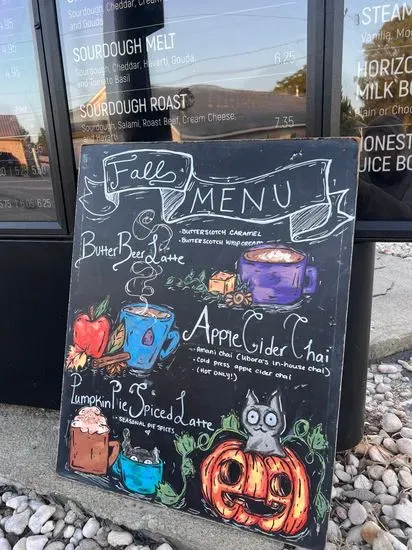 Sourdough, Cheddar, Cream
and Gouda
SOURDOUGH MELT
Sourdough, Cheddar, Havarti, Gouda,
and Tomato Basil
6.25
SOURDOUGH ROAST
Sourdough, Salami, Roast Beef, Cream Cheese,
and Havarti
7.35
4.95
4.95
5.75 | 6.05 6.25
STEAM
Vanilla, Mo
HORIZO
MILK BO
Plain or Choc
HONEST
JUICE BO
Fall
MENU
ButterBeer Latte
• BUTTERSCOTCH CARAMEL
• BUTTERSCOTCH WHIP CREAM
Apple Cider Chai
• Amani chai (ubora's in-house chai)
• Cold press apple cider chai
(HOT ONLY!)
Pumpkin Pie Spiced Latte
• SEASONAL PIE SPICES